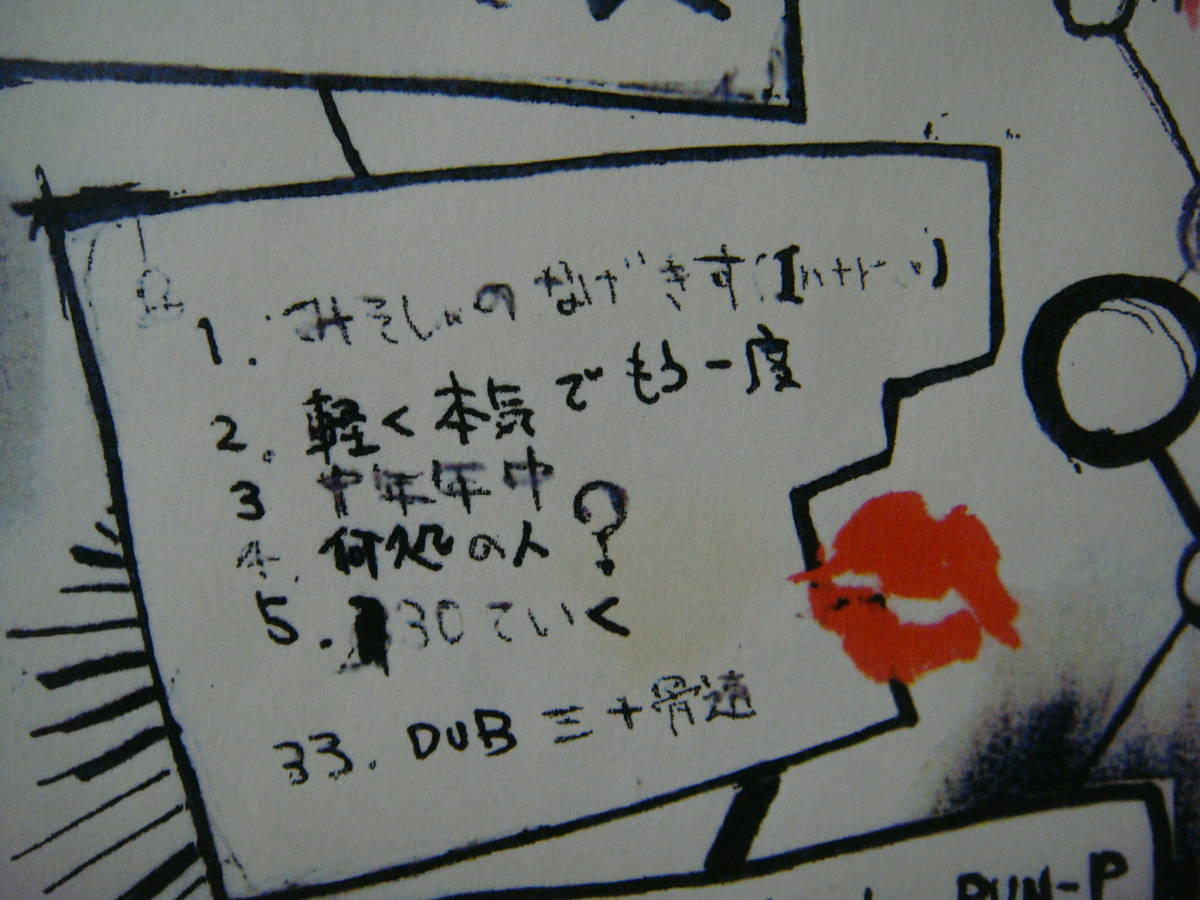 1. みそしるのなげきす(Intro)
2. 軽く本気でもう一度
3 中年年中
4. 何処の人?
5. 30ていく
33. DUB 三十骨遠
RUN-P